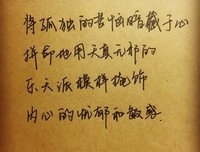 将孤独的苦恼暗藏于心
拼却地用天真无邪的
乐天派模样掩饰
内心的忧郁和敏感